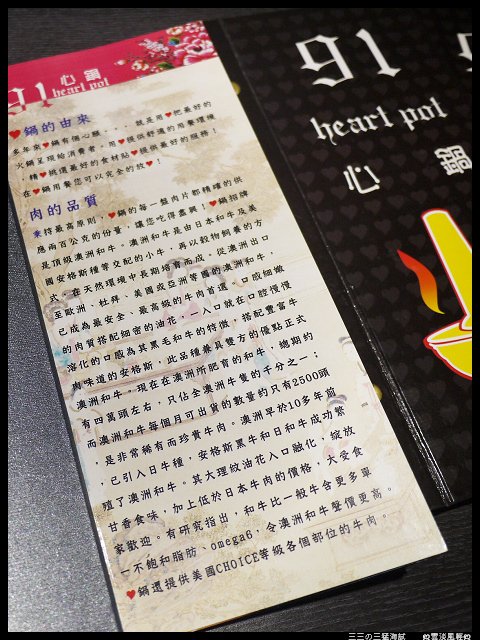 91 心鍋
heart pot
♥鍋的由來
多年來♥鍋有個心願...就是用♥把最好的
火鍋呈現給消費者,用♥提供舒適的用餐環境
、精♥挑選最好的食材貼♥提供最好的服務!
在♥鍋用餐您可以完全的放♥!
肉的品質
來持最高原則,♥鍋的每一盤肉片都精確的供
應兩百公克的份量,讓您吃得盡興!♥鍋招牌
是頂級澳洲和牛。澳洲和牛是由日本和牛及美
國安格斯種等交配的小牛,再以穀物飼養的方
式,在天然環境中長期培育而成。從澳洲出口
至歐洲、杜拜、美國或亞洲等國的澳洲和牛,
已成為最安全、最高級的牛肉首選。口感細嫩
的肉質搭配細密的油花,一入口就在口腔慢慢
溶化的口感為其黑毛和牛的特徵,搭配豐富牛
肉味道的安格斯,此品種兼具雙方的優點正式
澳洲和牛。現在在澳洲所肥育的和牛,總期約
有四萬頭左右,只佔全澳洲牛隻的千分之一;
而澳洲和牛每個月可出貨的數量約只有2500頭
,是非常稀有而珍貴牛肉。澳洲早於10多年前
,已引入日牛種,安格斯黑牛和日和牛成功繁
殖了澳洲和牛。其大理紋油花入口融化,綻放
甘香食味,加上低於日本牛肉的價格,大受食
家歡迎。有研究指出,和牛比一般牛含更多單
一不飽和脂肪、omega6,令澳洲和牛聲價更高。
♥鍋還提供美國CHOICE等級各個部位的牛肉。
91
heart pot
心 鍋
三三の三猛海賊
雲淡風輕